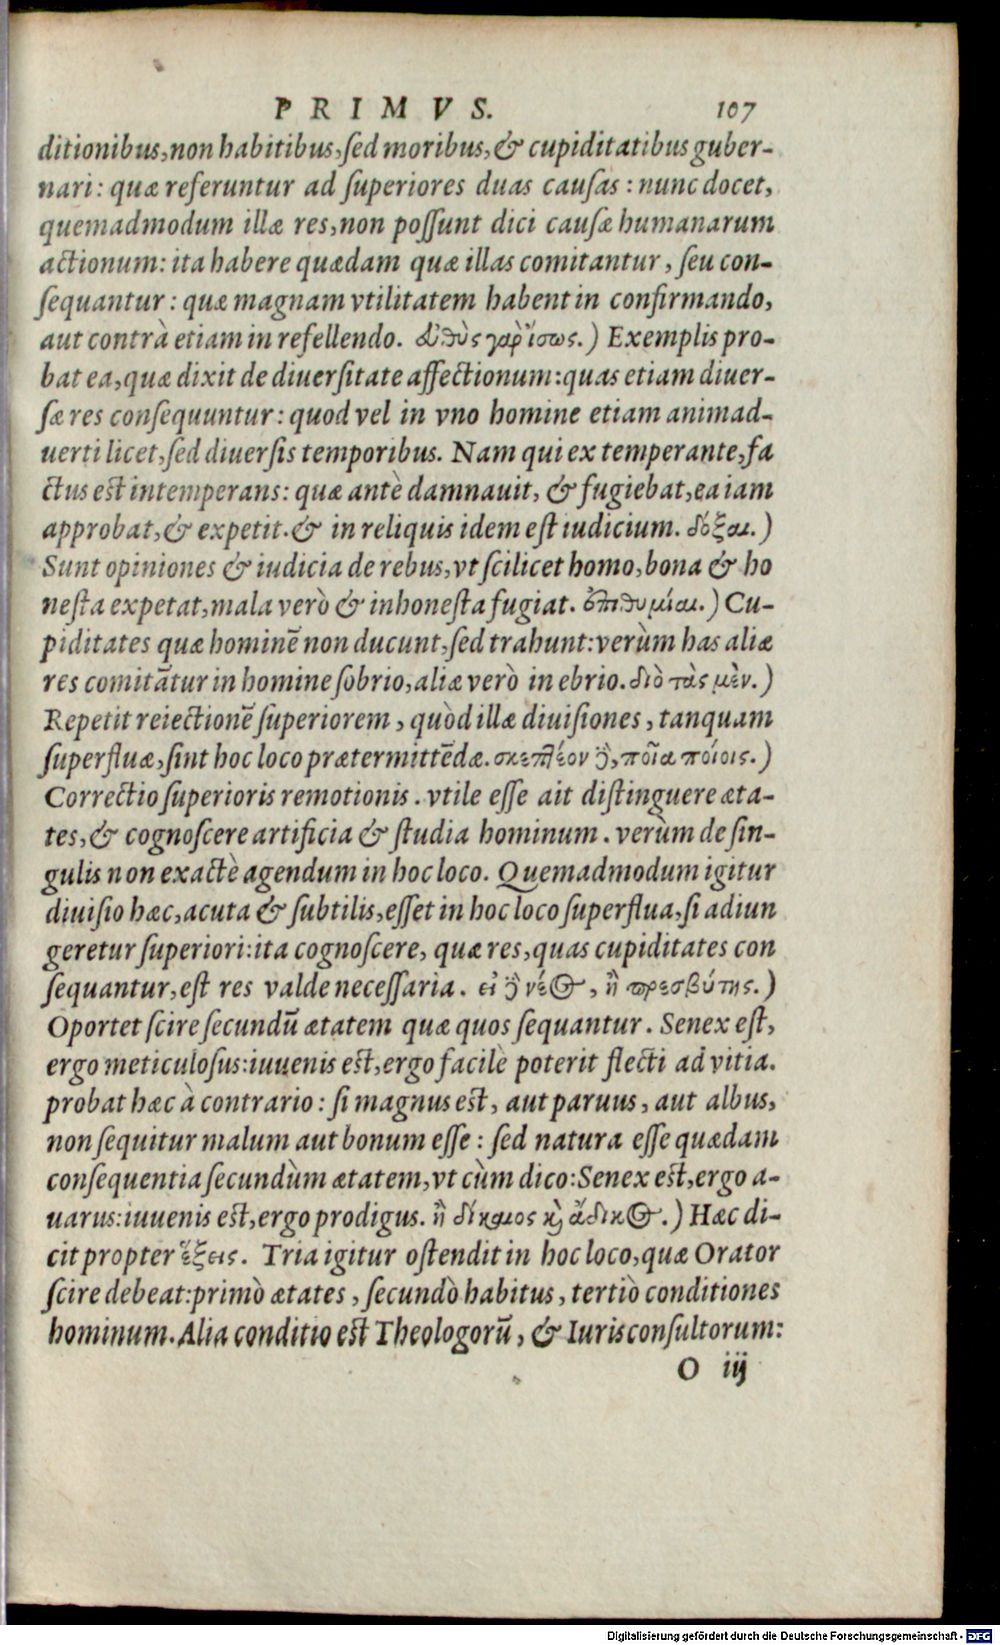 PRIMVS. 107
ditionibus, non habitibus, sed moribus, & cupiditatibus guber-
nari: quæ referuntur ad superiores duas causas: nunc docet,
quemadmodum illæ res, non possunt dici causæ humanarum
actionum: ita habere quædam quæ illas comitantur, seu con-
sequantur: quæ magnam vtilitatem habent in confirmando,
aut contrà etiam in refellendo. εὐθὺς γὰρ ἴσως.) Exemplis pro-
bat ea, quæ dixit de diuersitate affectionum: quas etiam diuer-
sæ res consequuntur: quod vel in vno homine etiam animad-
uerti licet, sed diuersis temporibus. Nam qui ex temperante, fa
ctus est intemperans: quæ antè damnauit, & fugiebat, ea iam
approbat, & expetit. & in reliquis idem est iudicium. δόξαι.)
Sunt opiniones & iudicia de rebus, vt scilicet homo, bona & ho
nesta expetat, mala verò & inhonesta fugiat. ἐπιθυμίαι.) Cu-
piditates quæ hominē non ducunt, sed trahunt: verùm has aliæ
res comitātur in homine sobrio, aliæ verò in ebrio. διὸ τὰς μὲν.)
Repetit reiectionē superiorem, quòd illæ diuisiones, tanquam
superfluæ, sint hoc loco prætermittēdæ. σκεπτέον δὲ, ποῖα ποίοις.)
Correctio superioris remotionis. vtile esse ait distinguere æta-
tes, & cognoscere artificia & studia hominum. verùm de sin-
gulis non exactè agendum in hoc loco. Quemadmodum igitur
diuisio hæc, acuta & subtilis, esset in hoc loco superflua, si adiun
geretur superiori: ita cognoscere, quæ res, quas cupiditates con
sequantur, est res valde necessaria. εἰ δὲ νέος, ἢ πρεσβύτης.)
Oportet scire secundū ætatem quæ quos sequantur. Senex est,
ergo meticulosus: iuuenis est, ergo facilè poterit flecti ad vitia.
probat hæc à contrario: si magnus est, aut paruus, aut albus,
non sequitur malum aut bonum esse: sed natura esse quædam
consequentia secundùm ætatem, vt cùm dico: Senex est, ergo a-
uarus: iuuenis est, ergo prodigus. ἢ δίκαιος καὶ ἄδικος.) Hæc di-
cit propter ἕξεις. Tria igitur ostendit in hoc loco, quæ Orator
scire debeat: primò ætates, secundò habitus, tertiò conditiones
hominum. Alia conditio est Theologorū, & Iurisconsultorum:
O iij
Digitalisierung gefördert durch die Deutsche Forschungsgemeinschaft - DFG